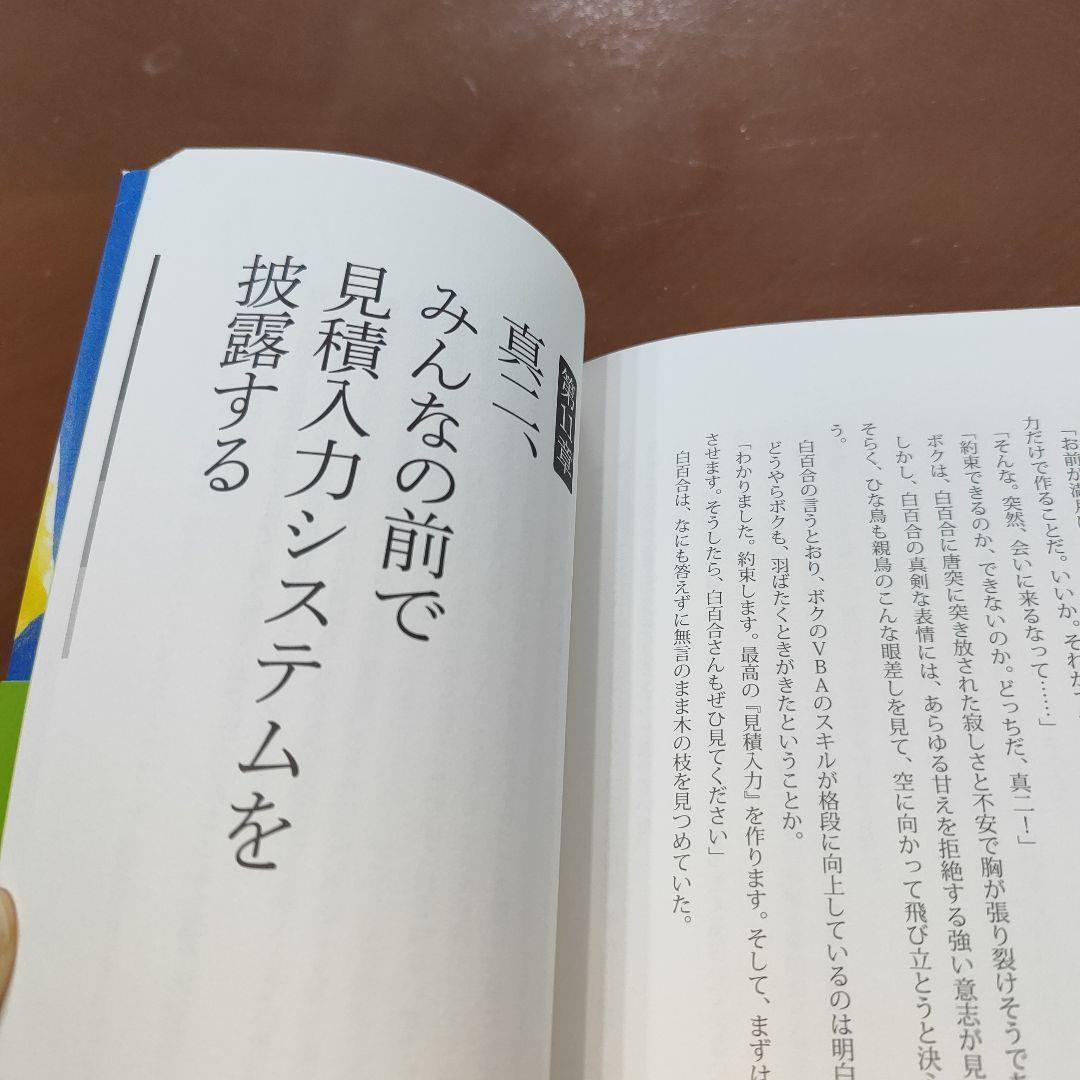 「お前が満足
力だけで作ることだ。いいか。それが
「そんな。突然、会いに来るなって……」
「約束できるのか、できないのか。どっちだ、真二！」
ボクは、白百合に唐突に突き放された寂しさと不安で胸が張り裂けそうで
しかし、白百合の真剣な表情には、あらゆる甘えを拒絶する強い意志が見
そらく、ひな鳥も親鳥のこんな眼差しを見て、空に向かって飛び立とうと決
う。
白百合の言うとおり、ボクのVBAのスキルが格段に向上しているのは明白
どうやらボクも、羽ばたくときがきたということか。
「わかりました。約束します。最高の『見積入力』を作ります。そして、まずは
させます。そうしたら、白百合さんもぜひ見てください」
白百合は、なにも答えずに無言のまま木の枝を見つめていた。
第11章
真二、
みんなの前で
見積入力システムを
披露する